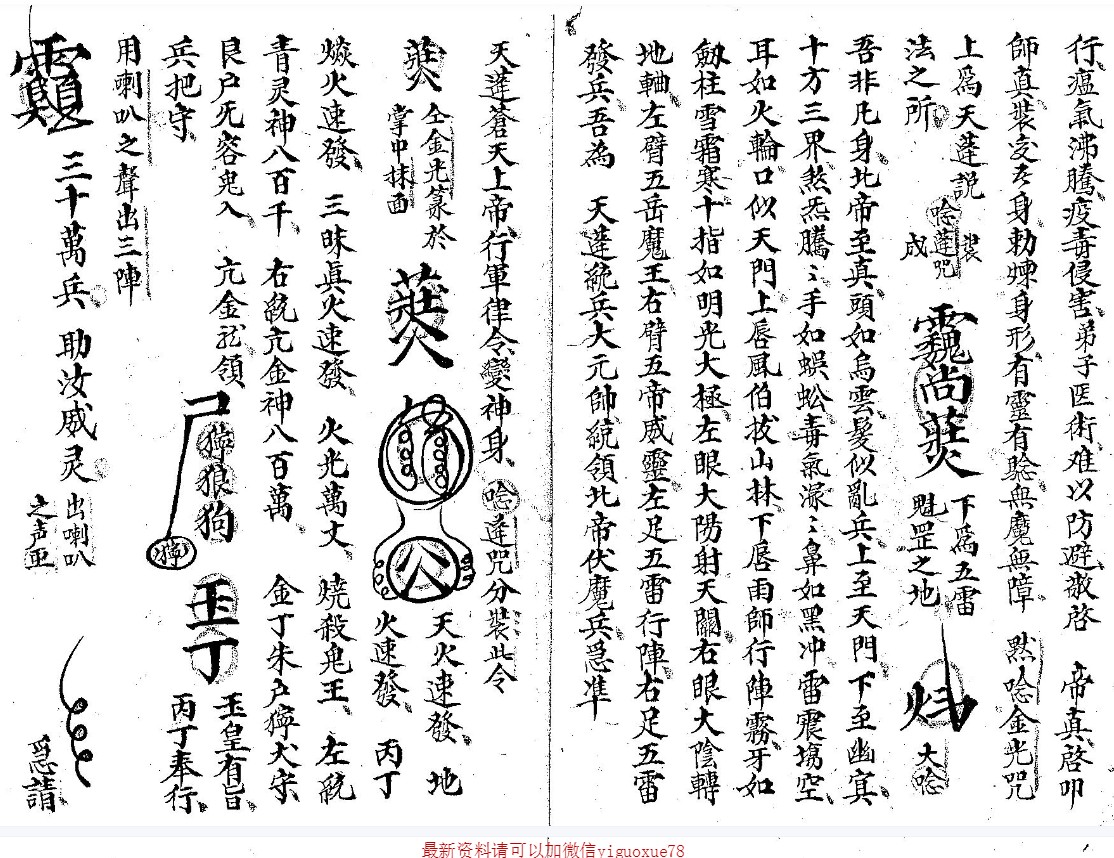 行瘟氣沸騰疫毒侵害弟子匡術难以防避敬啓　帝真啓叩
師真裝变吾身勅煉身形有靈有驗無魔無障　黙唸金光咒
上爲天蓬説
法之所
唸蓬咒
裝成
下爲五雷
魁罡之地
大唸
吾非凡身北帝至真頭如烏雲髮似亂兵上至天門下至幽冥
十方三界煞炁騰〻手如蜈蚣毒氣濛〻鼻如黑冲雷震塲空
耳如火輪口似天門上唇風伯拔山林下唇雨師行陣霧牙如
劔柱雪霜寒十指如明光大極左眼大陽射天關右眼大陰轉
地軸左臂五岳魔王右臂五帝威靈左足五雷行陣右足五雷
發兵吾為　天蓬統兵大元帥統領北帝伏魔兵急準
天蓬蒼天上帝行軍律令變神身　唸蓬咒分裝此令
仝金光篆於
掌中抹面
天火速發　地
火速發　丙丁
燄火速發　三昧真火速發　火光萬丈　燒殺鬼王　左統
青灵神八百千　右統亢金神八百萬　金丁朱户獰犬守
艮户死容鬼入　亢金龙領
兵把守
獰狼狗
獰
玉丁
玉皇有旨
丙丁奉行
用喇叭之聲出三陣
三十萬兵　助汝威灵
出喇叭
之声
急請
最新资料请可以加微信yiguoxue78